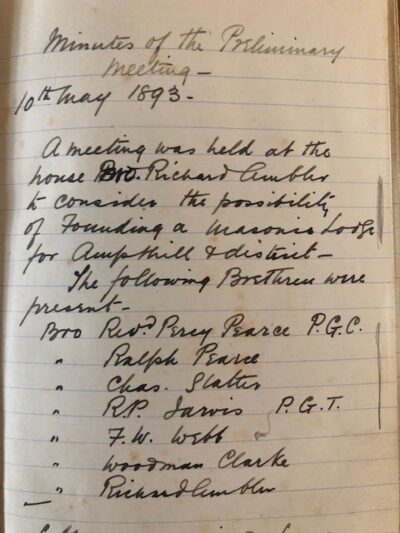 Minutes of the Preliminary
Meeting -
10th May 1893 -
A meeting was held at the
house Bro. Richard Ambler
to consider the possibility
of Founding a Masonic Lodge
for Ampthill & district -
The following Brethren were
present -
Bro Revd. Percy Pearce P.G.C.
" Ralph Pearce
" Chas. Slatter
" R.P. Jarvis P.G.T.
" F.W. Webb
" Woodman Clarke
" Richard Ambler